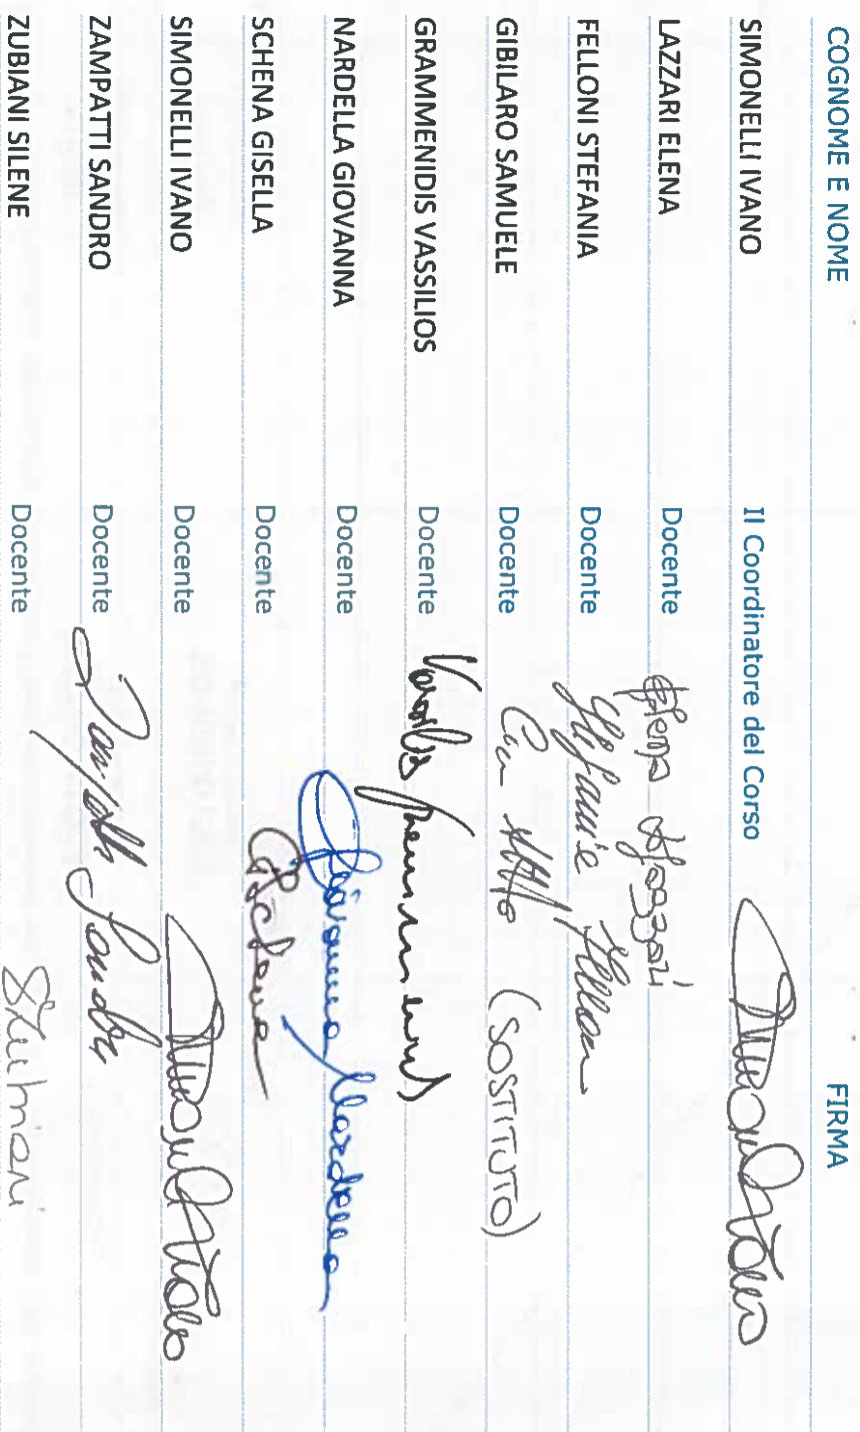 COGNOME E NOME FIRMA
SIMONELLI IVANO Il Coordinatore del Corso
LAZZARI ELENA Docente Elena Lazzari
FELLONI STEFANIA Docente Stefania Felloni
GIBILARO SAMUELE Docente (SOSTITUTO)
GRAMMENIDIS VASSILIOS Docente
NARDELLA GIOVANNA Docente Giovanna Nardella
SCHENA GISELLA Docente GSchena
SIMONELLI IVANO Docente
ZAMPATTI SANDRO Docente Zampatti Sandro
ZUBIANI SILENE Docente SZubiani